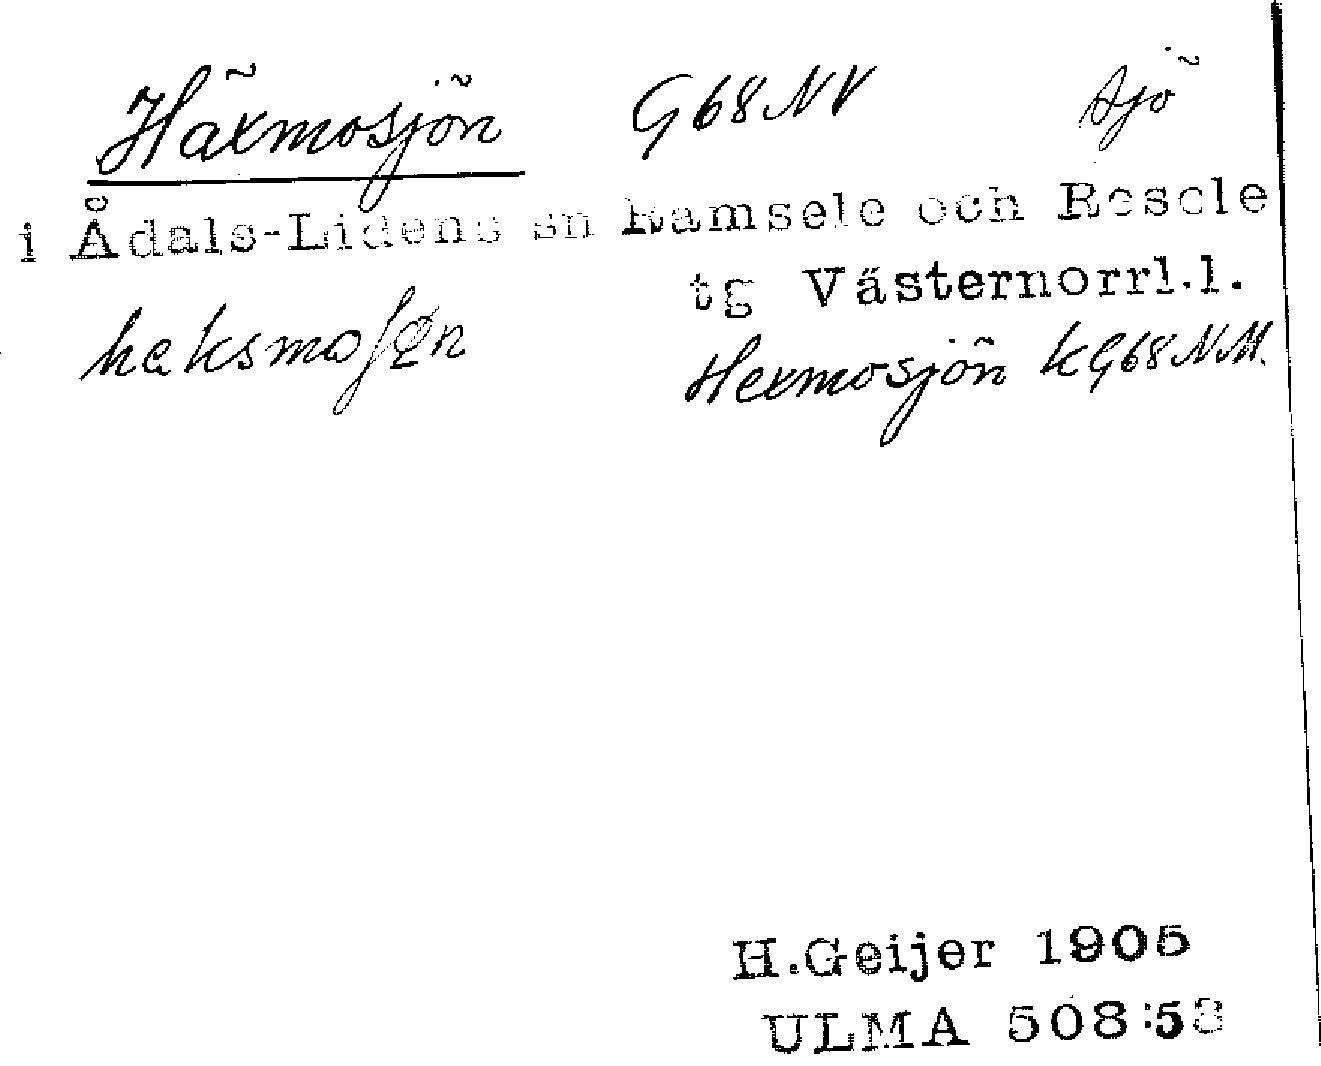 Häxmosjön G68NV sjö
i Ådals-Lidens sn Ramsele och Resele
tg Västernorrl.l.
haksmoʃøn Hexmosjön KG68NM.
H.Geijer 1905
ULMA 508:53